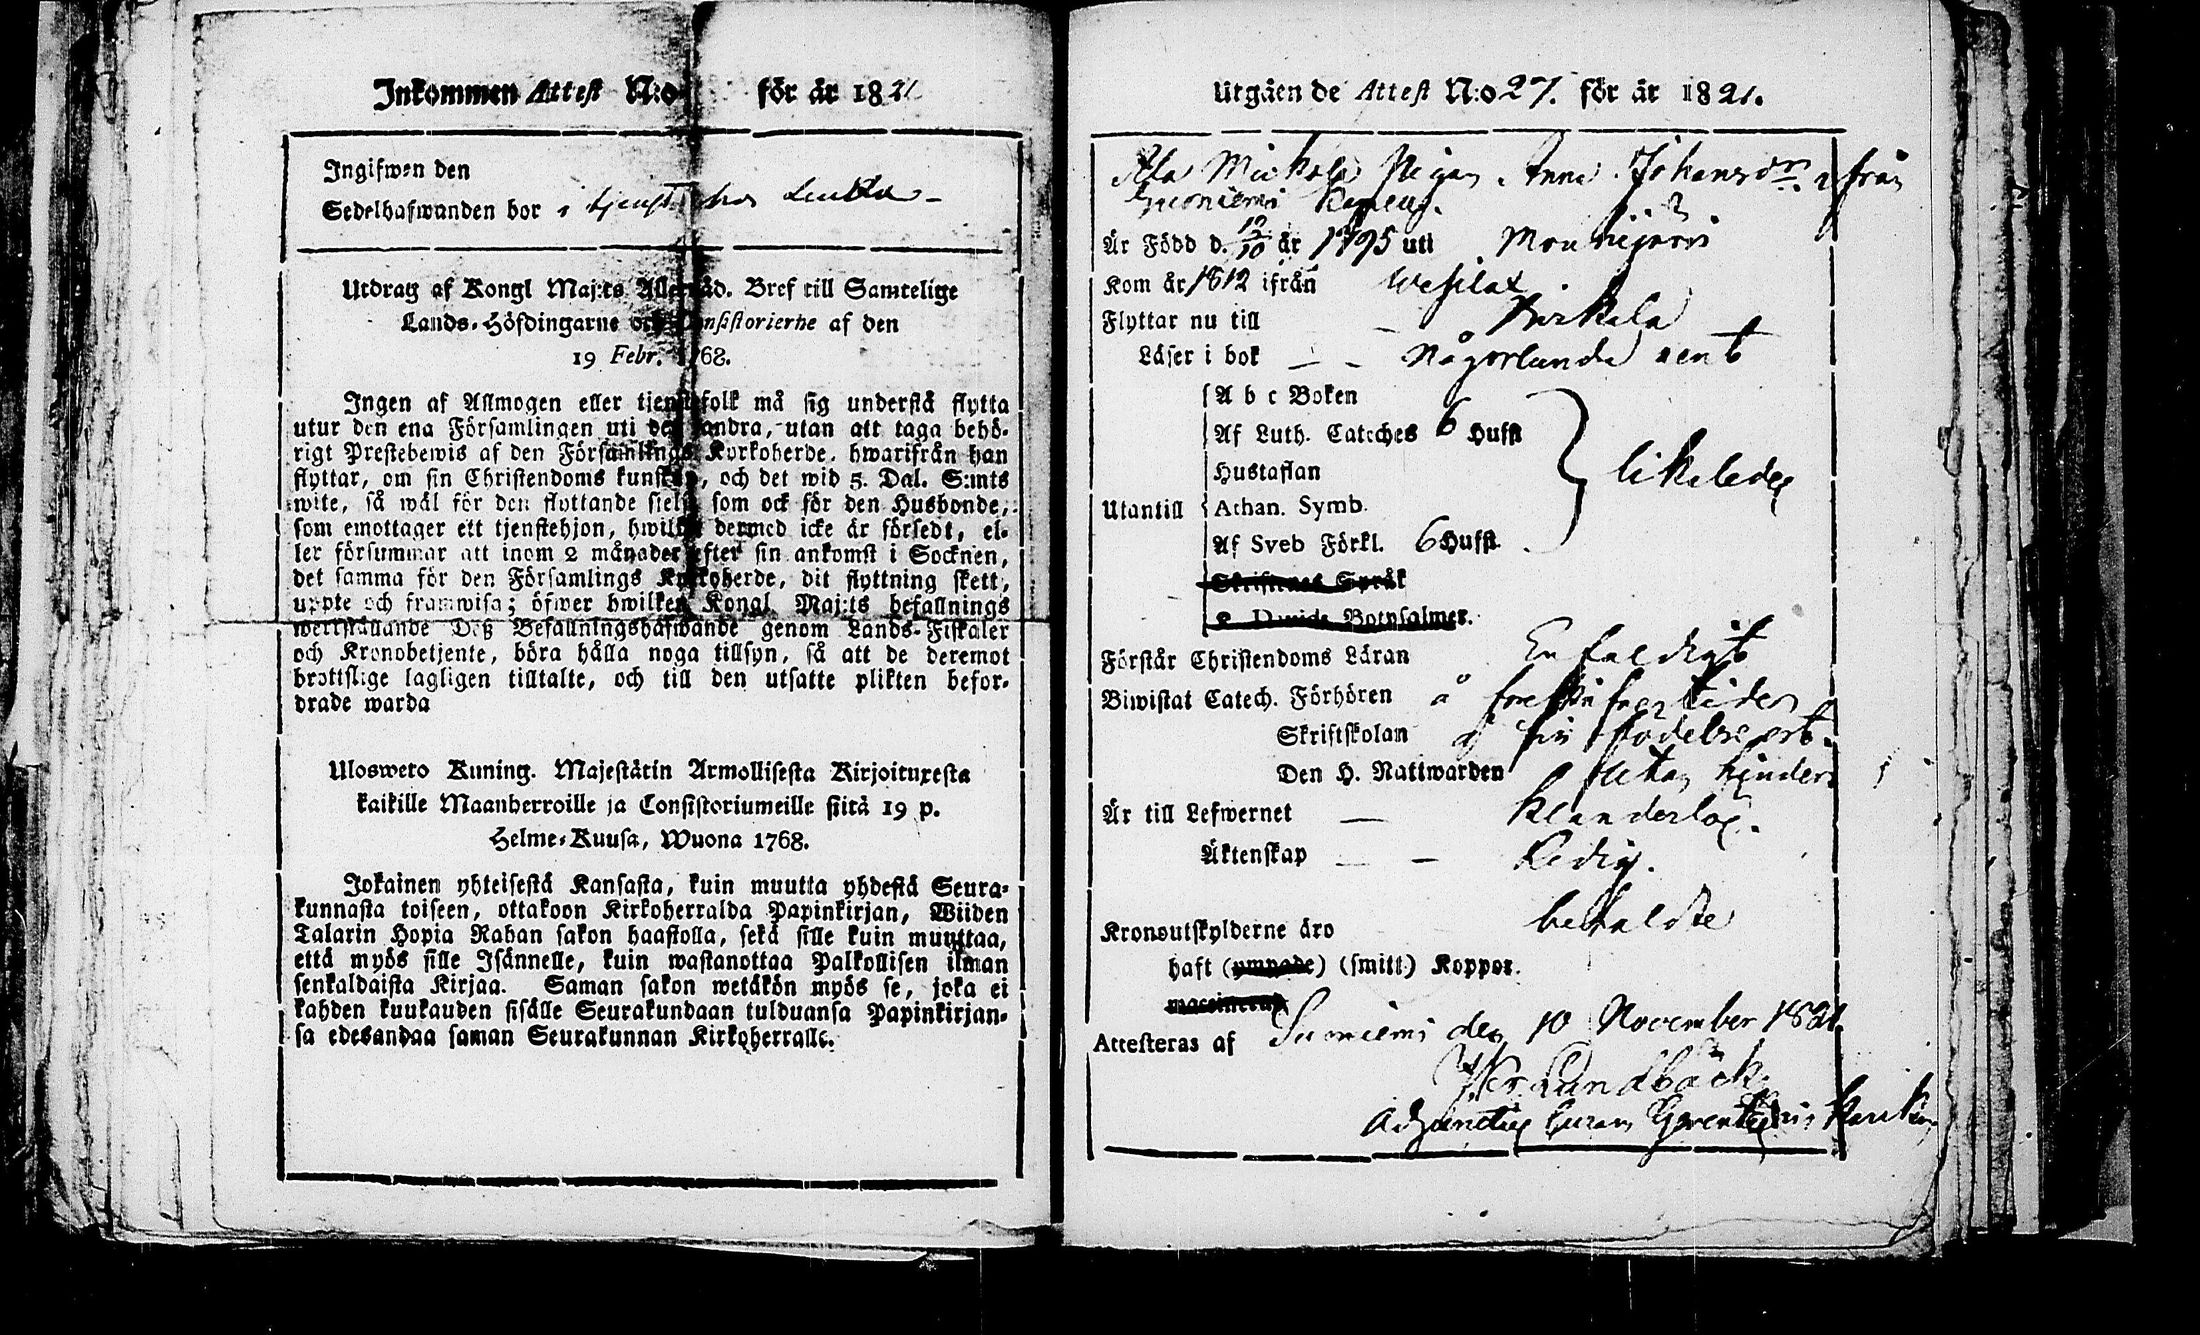 Inkommen Attest N:o för år 1821
Ingifwen den
Sedelhafwanden bor i tjenst hos
Utdrag af Kongl Maj:ts Allernåd. Bref till Samtelige
Lands-Höfdingarne och Consistorierne af den
19 Febr. 1768.
Ingen af Allmogen eller tjenstefolk må sig understå flytta
utur den ena Församlingen uti den andra, utan att taga behö-
rigt Prestebewis af den Församlings Kyrkoherde, hwarifrån han
flyttar, om sin Christendoms kunskap, och det wid 5. Dal. S:mts
wite, så wäl för den flyttande sielf, som ock för den Husbonde,
som emottager ett tjenstehjon, hwilket dermed icke är försedt, el-
ler försummar att inom 2 månader efter sin ankomst i Socknen,
det samma för den Församlings Kyrkoherde, dit flyttning skett,
uppte och framwisa; öfwer hwilken Kongl. Maj:ts befallnings
werkställande Deß Befallningshafwande genom Lands-Fiskaler
och Kronobetjente, böra hålla noga tillsyn, så att de deremot
brottslige lagligen tilltalte, och till den utsatte plikten befor-
drade warda
Uloswето Kuning. Majestätin Armollisesta Kirjoituxesta
kaikille Maanherroille ja Consistoriumeille siitä 19 p.
Helme-Kuusa, Wuona 1768.
Jokainen yhteisestä Kansasta, kuin muutta yhdestä Seura-
kunnasta toiseen, ottakoon Kirkoherralda Papinkirjan, Wiiden
Talarin Hopia Rahan sakon haastolla, sekä sille kuin muuttaa,
että myös sille Isännelle, kuin wastanottaa Palkollisen ilman
senkaldaista Kirjaa. Saman sakon wetäkön myös se, joka ei
kahden kuukauden sisälle Seurakundaan tulduansa Papinkirjan-
sa edesandaa saman Seurakunnan Kirkoherralle.
Utgåen de Attest N:o 27. för år 1821.
Ala Mickola Pigan Anna Johansdr. från
Suoniemi Kapell.
Är Född d. 12/10 år 1795 uti Mouhijärvi
Kom år 1812 ifrån Wesilax
Flyttar nu till Birkala
Läser i bok någorlunda rent
A b c Boken
Af Luth. Catches 6 Hufst
Hustaflan
Utantill Athan. Symb. likaledes
Af Sveb Förkl. 6 Hufst.
Skriftenes Språk
K. Davids Botpsalmer.
Förstår Christendoms Läran Enfaldigt
Biwistat Catech. Förhören å föreskrifne tider
Skriftskolan å sin födelse ort.
Den H. Nattwarden utan hinder
Är till Lefwernet klanderlös.
Äktenskap Ledig.
Kronoutskylderne äro betaldte
haft (ympade) (smitt) Koppor.
maccinerad
Attesteras af Suoniemi den 10 November 1821
Lundbäck
Adjunctus Curam Gerens